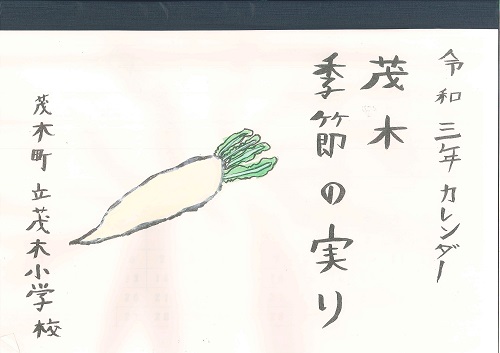 令和三年カレンダー
茂木
季節の実り
茂木町立茂木小学校